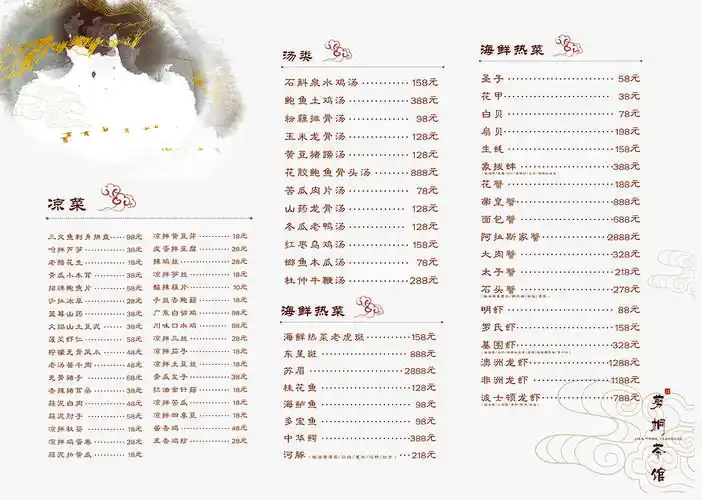 凉菜
三文鱼刺身拼盘 98元
老醋花生 18元
青瓜小木耳 38元
招牌鲍鱼片 58元
蓝莓山药 38元
火焰山土豆泥 38元
菠菜虾仁 58元
柠檬无骨凤爪 48元
老汤酱牛肉 48元
无骨猪手 68元
香辣猪耳朵 38元
蒜泥白肉 48元
蒜泥肘子 58元
凉拌鸡蛋卷 28元
蒜泥拍黄瓜 18元
凉拌黄豆芽 18元
皮蛋拌豆腐 28元
辣鸡丝 28元
凉拌笋丝 18元
酸辣藕片 10元
手丝杏鲍菇 18元
广东白切鸡 98元
川味口水鸡 98元
凉拌三丝 28元
凉拌茄子 18元
凉拌土豆丝 18元
青瓜皮子 38元
红油金针菇 18元
凉拌苦瓜 18元
凉拌四季豆 18元
酱香鸡 48元
五香鸡珍 28元
汤类
石斛泉水鸡汤 158元
鲍鱼土鸡汤 388元
粉藕排骨汤 98元
玉米龙骨汤 128元
黄豆猪蹄汤 128元
花胶鲍鱼骨头汤 888元
苦瓜肉片汤 78元
山药龙骨汤 128元
冬瓜老鸭汤 128元
红枣乌鸡汤 158元
鲫鱼木瓜汤 78元
杜仲牛鞭汤 288元
海鲜热菜
海鲜热菜老虎斑 158元
东星斑 888元
苏眉 2888元
桂花鱼 128元
海鲈鱼 128元
多宝鱼 128元
中华鳄 388元
河豚 218元
海鲜热菜
圣子 58元
花甲 38元
白贝 78元
扇贝 198元
生蚝 158元
象拔蚌 388元
花蟹 188元
帝皇蟹 888元
面包蟹 688元
阿拉斯家蟹 2888元
大肉蟹 328元
太子蟹 218元
石头蟹 278元
明虾 88元
罗氏虾 158元
基围虾 328元
澳洲龙虾 1288元
非洲龙虾 1188元
波士顿龙虾 788元